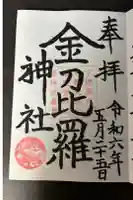 奉拝
令和六年
五月二十五日
金刀比羅
神社